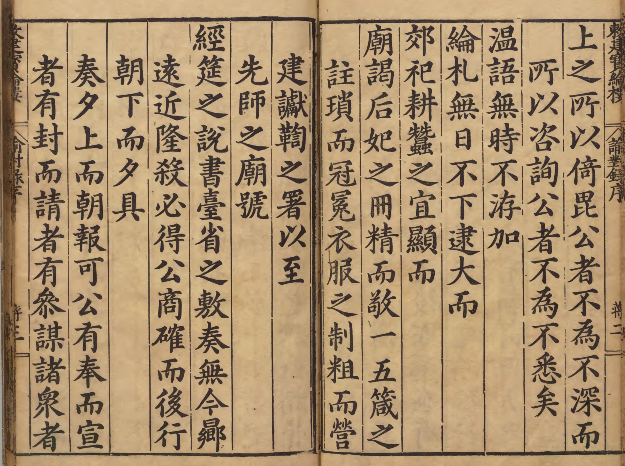 上之所以倚毘公者不為不深而
所以咨詢公者不為不悉矣
溫語無時不洊加
綸札無日不下逮大而
郊祀耕蠶之宜顯而
廟謁后妃之冊精而敬一五箴之
註瑣而冠冕衣服之制粗而營
建讞鞫之署以至
先師之廟號
經筵之說書臺省之敷奏無今曏
遠近隆殺必得公商確而後行
朝下而夕具
奏夕上而朝報可公有奉而宣
者有封而請者有叅謀諸衆者